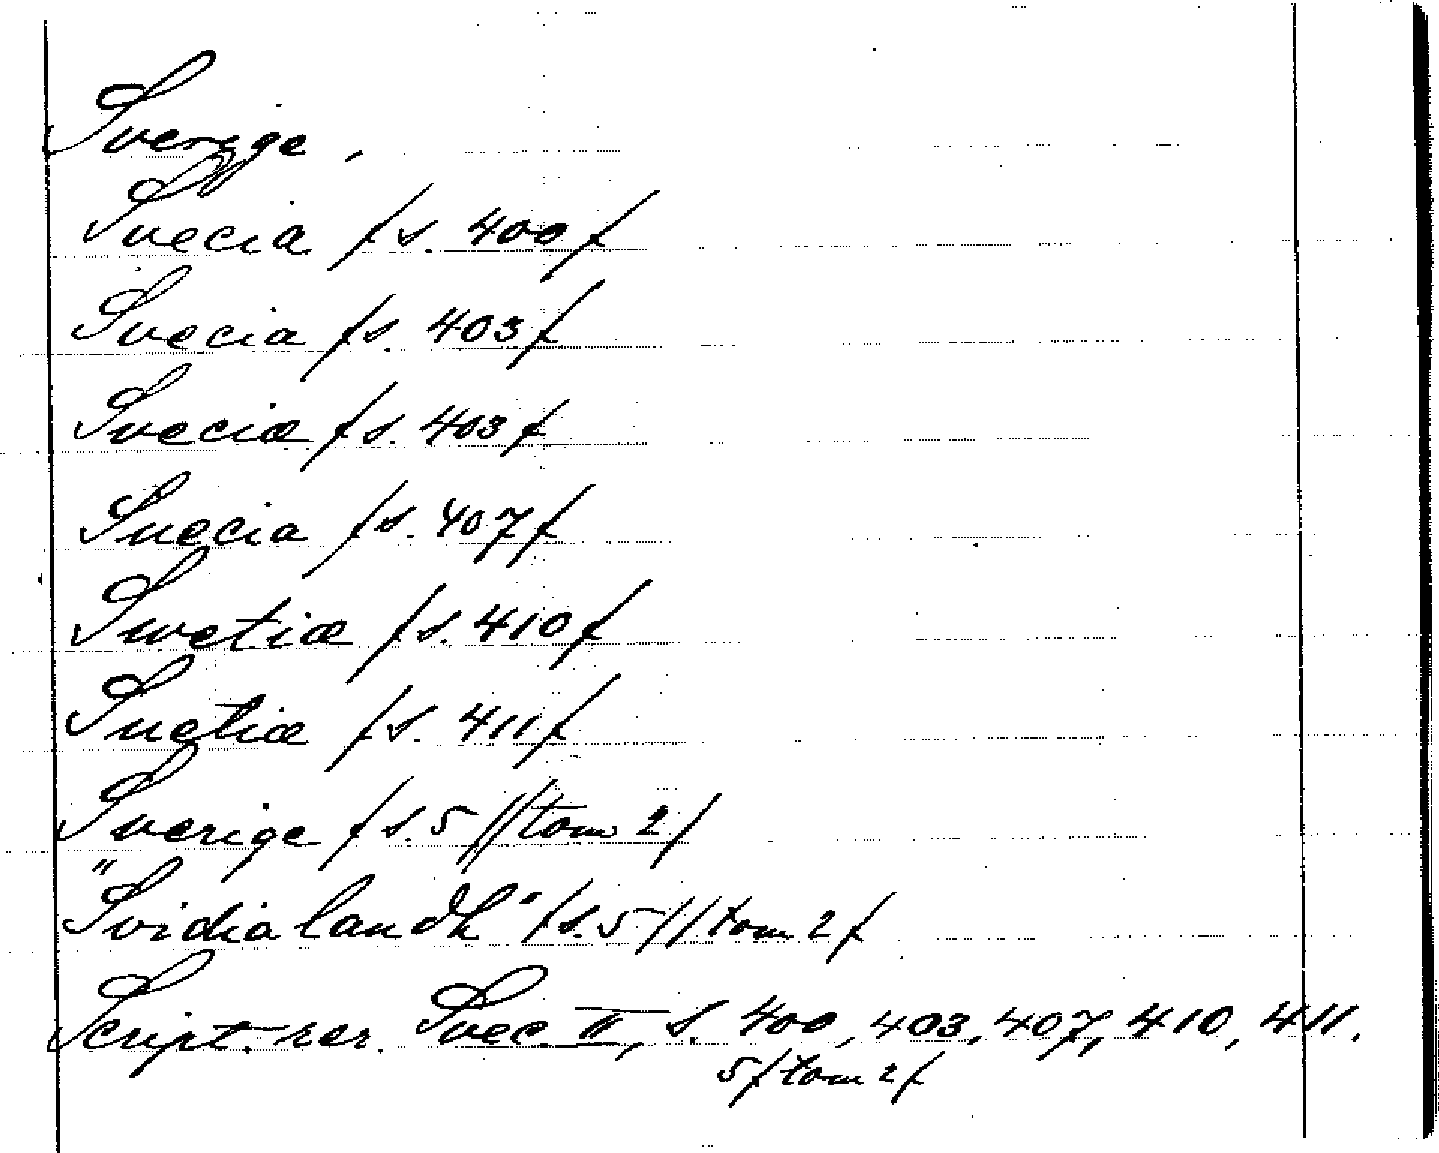 Sverige.
Svecia /s. 400/
Svecia /s. 403/
Sveciæ /s. 403/
Suecia /s. 407/
Swetiæ /s. 410/
Suetiæ /s. 411/
Sverige /s. 5 //tom 2/
"Svidia landh" /s. 5 // tom 2/
Script. rer. Svec. II, s. 400, 403, 407, 410, 411.
5/tom 2/